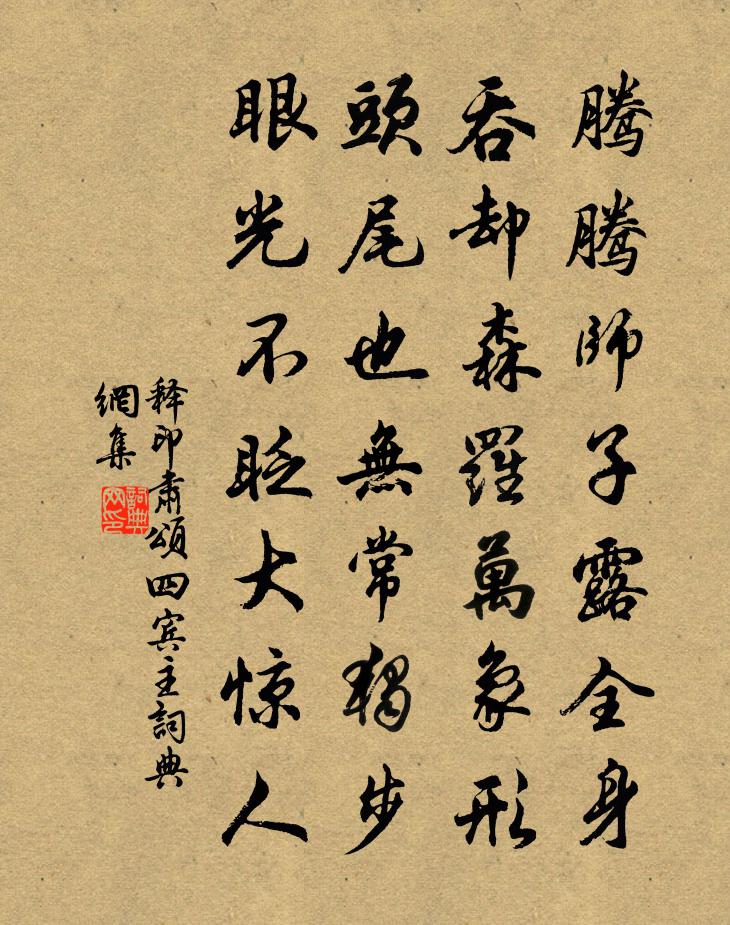 騰騰師子露全身
吞却森羅萬象形
頭尾也無常獨步
眼光不眨大惊人
释印肃頌四宾主詞典
網集
詞典
网印